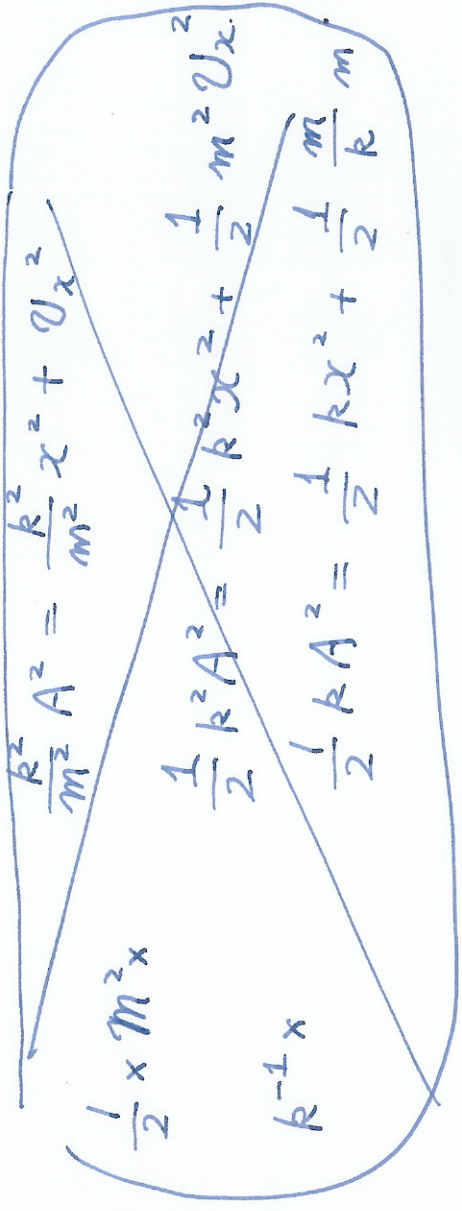 k²/m² A² = k²/m² x² + v_x²
1/2 × m² × 1/2 k² A² = 1/2 k² x² + 1/2 m² v_x²
k⁻¹ × 1/2 k A² = 1/2 k x² + 1/2 m/k m